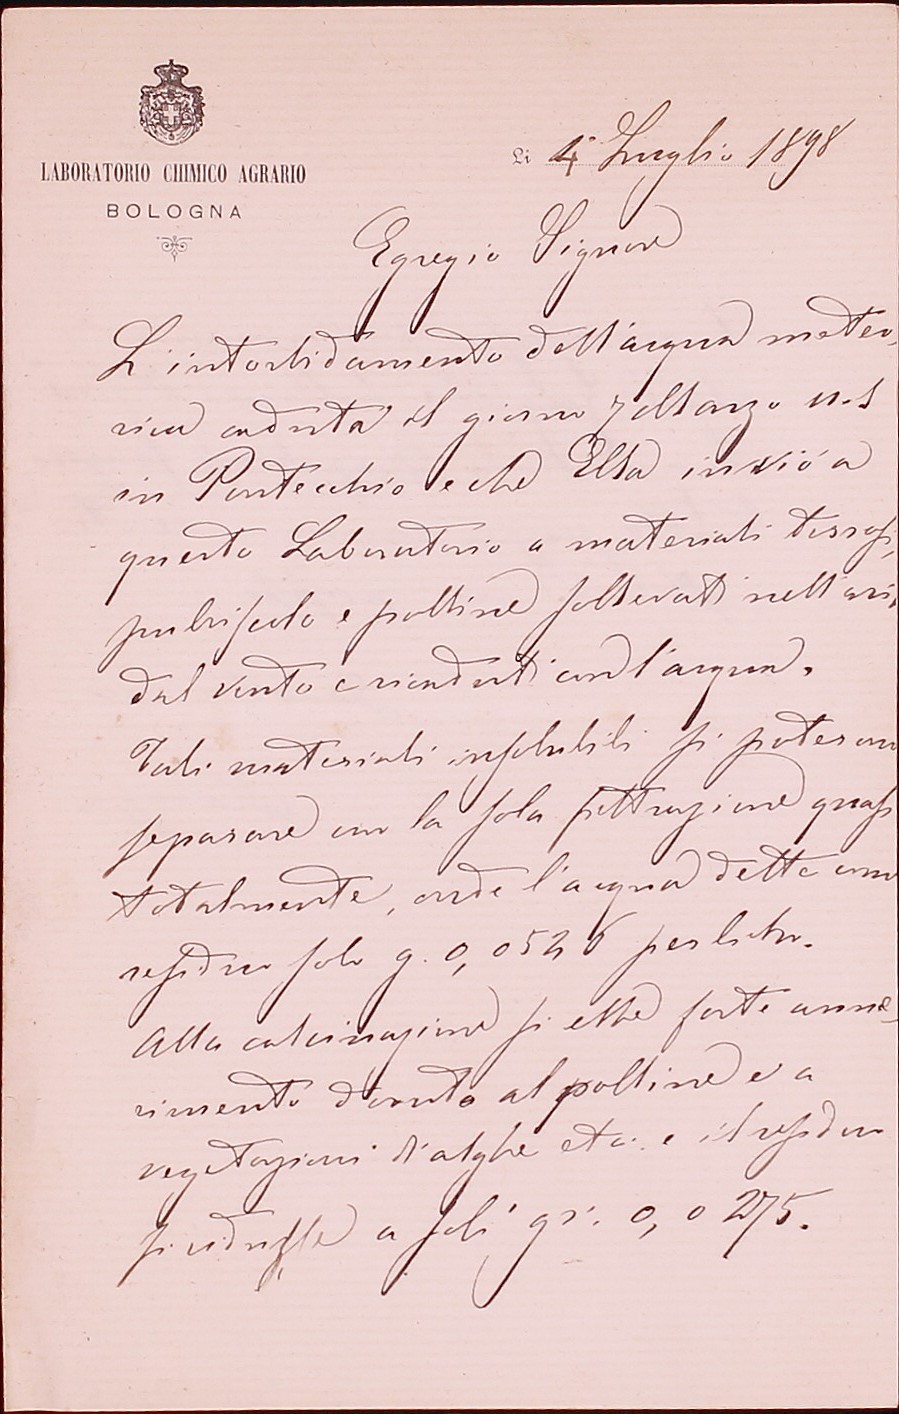 LABORATORIO CHIMICO AGRARIO
BOLOGNA
Li 4 Luglio 1898
Egregio Signore
L'intorbidamento dell'acqua meteo,
rica caduta il giorno 7 Marzo u.s
in Pontecchio e che Ella inviò a
questo Laboratorio a materiali terrosi,
pulviscolo e polline sollevati nell'aria
dal vento e ricaduti con l'acqua.
Tali materiali insolubili si poterono
separare con la sola filtrazione quasi
totalmente, onde l'acqua dette come
residuo solo g. 0,0526 per litro.
Alla calcinazione si ebbe forte anne,
rimento dovuto al polline e a
vegetazioni d'alghe etc. e il residuo
si ridusse a soli gr. 0,0275.